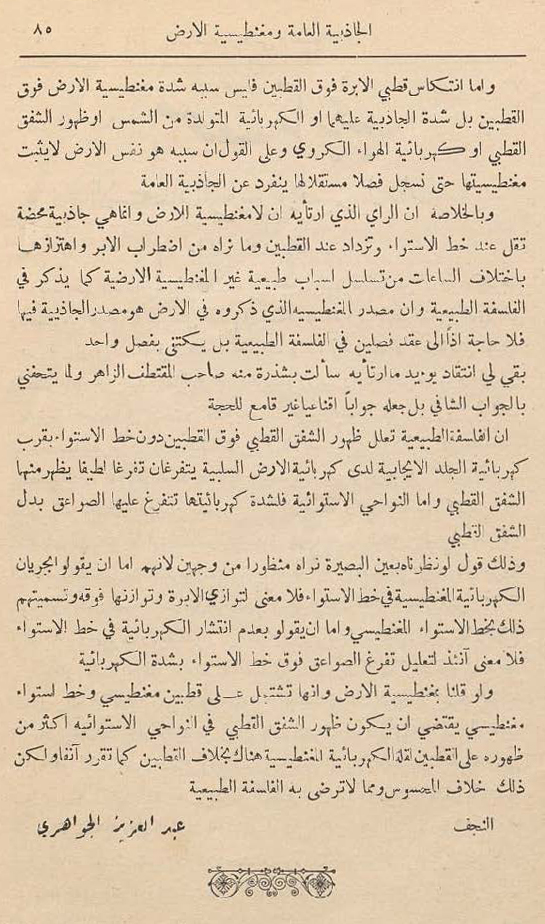 الجاذبية العامة ومغنطيسية الارض ٨٥
واما انتكاس قطبي الابرة فوق القطبين فليس سببه شدة مغنطيسية الارض فوق
القطبين بل شدة الجاذبية عليهما او الكهربائية المتولدة من الشمس او ظهور الشفق
القطبي او كهربائية الهواء الكروي وعلى القول ان سببه هو نفس الارض لا يثبت
مغنطيسيتها حتى تسجل فصلا مستقلا لها ينفرد عن الجاذبية العامة
وبالخلاصة ان الراي الذي ارتأيه ان لا مغنطيسية الارض وانما هي جاذبية محضة
تقل عند خط الاستواء وتزداد عند القطبين وما نراه من اضطراب الابر واهتزازها
باختلاف الساعات من تسلسل اسباب طبيعية غير المغنطيسية الارضية كما يذكر في
الفلسفة الطبيعية وان مصدر المغنطيسيه الذي ذكروه في الارض هو مصدر الجاذبية فيها
فلا حاجة اذاً الى عقد فصلين في الفلسفة الطبيعية بل يكتفى بفصل واحد
بقي لي انتقاد يوءيد ما ارتأيه سألت بشذرة منه صاحب المقتطف الزاهر ولما يتحفني
بالجواب الشافي بل جعله جواباً اقناعيا غير قامع للحجة
ان الفلسفة الطبيعية تعلل ظهور الشفق القطبي فوق القطبين دون خط الاستواء بقرب
كهربائية الجلد الايجابية لدى كهربائية الارض السلبية يتفرغان تفرغا لطيفا يظهر منهما
الشفق القطبي واما النواحي الاستوائية فلشدة كهربائيتها تتفرغ عليها الصواعق بدل
الشفق القطبي
وذلك قول لو نظرناه بعين البصيرة نراه منظورا من وجهين لانهم اما ان يقولوا بجريان
الكهربائية المغنطيسية في خط الاستواء فلا معنى لتوازي الابرة وتوازنها فوقه وتسميتهم
ذلك بخط الاستواء المغنطيسي واما ان يقولو بعدم انتشار الكهربائية في خط الاستواء
فلا معنى آنئذ لتعليل تفرغ الصواعق فوق خط الاستواء بشدة الكهربائية
ولو قلنا بمغنطيسية الارض وانها تشتمل على قطبين مغنطيسي وخط استواء
مغنطيسي يقتضي ان يكون ظهور الشفق القطبي في النواحي الاستوائيه اكثر من
ظهوره على القطبين لقلة الكهربائية المغنطيسية هناك بخلاف القطبين كما تقرر آنفا ولكن
ذلك خلاف المحسوس ومما لا ترضى به الفلسفة الطبيعية
النجف عبد العزيز الجواهري